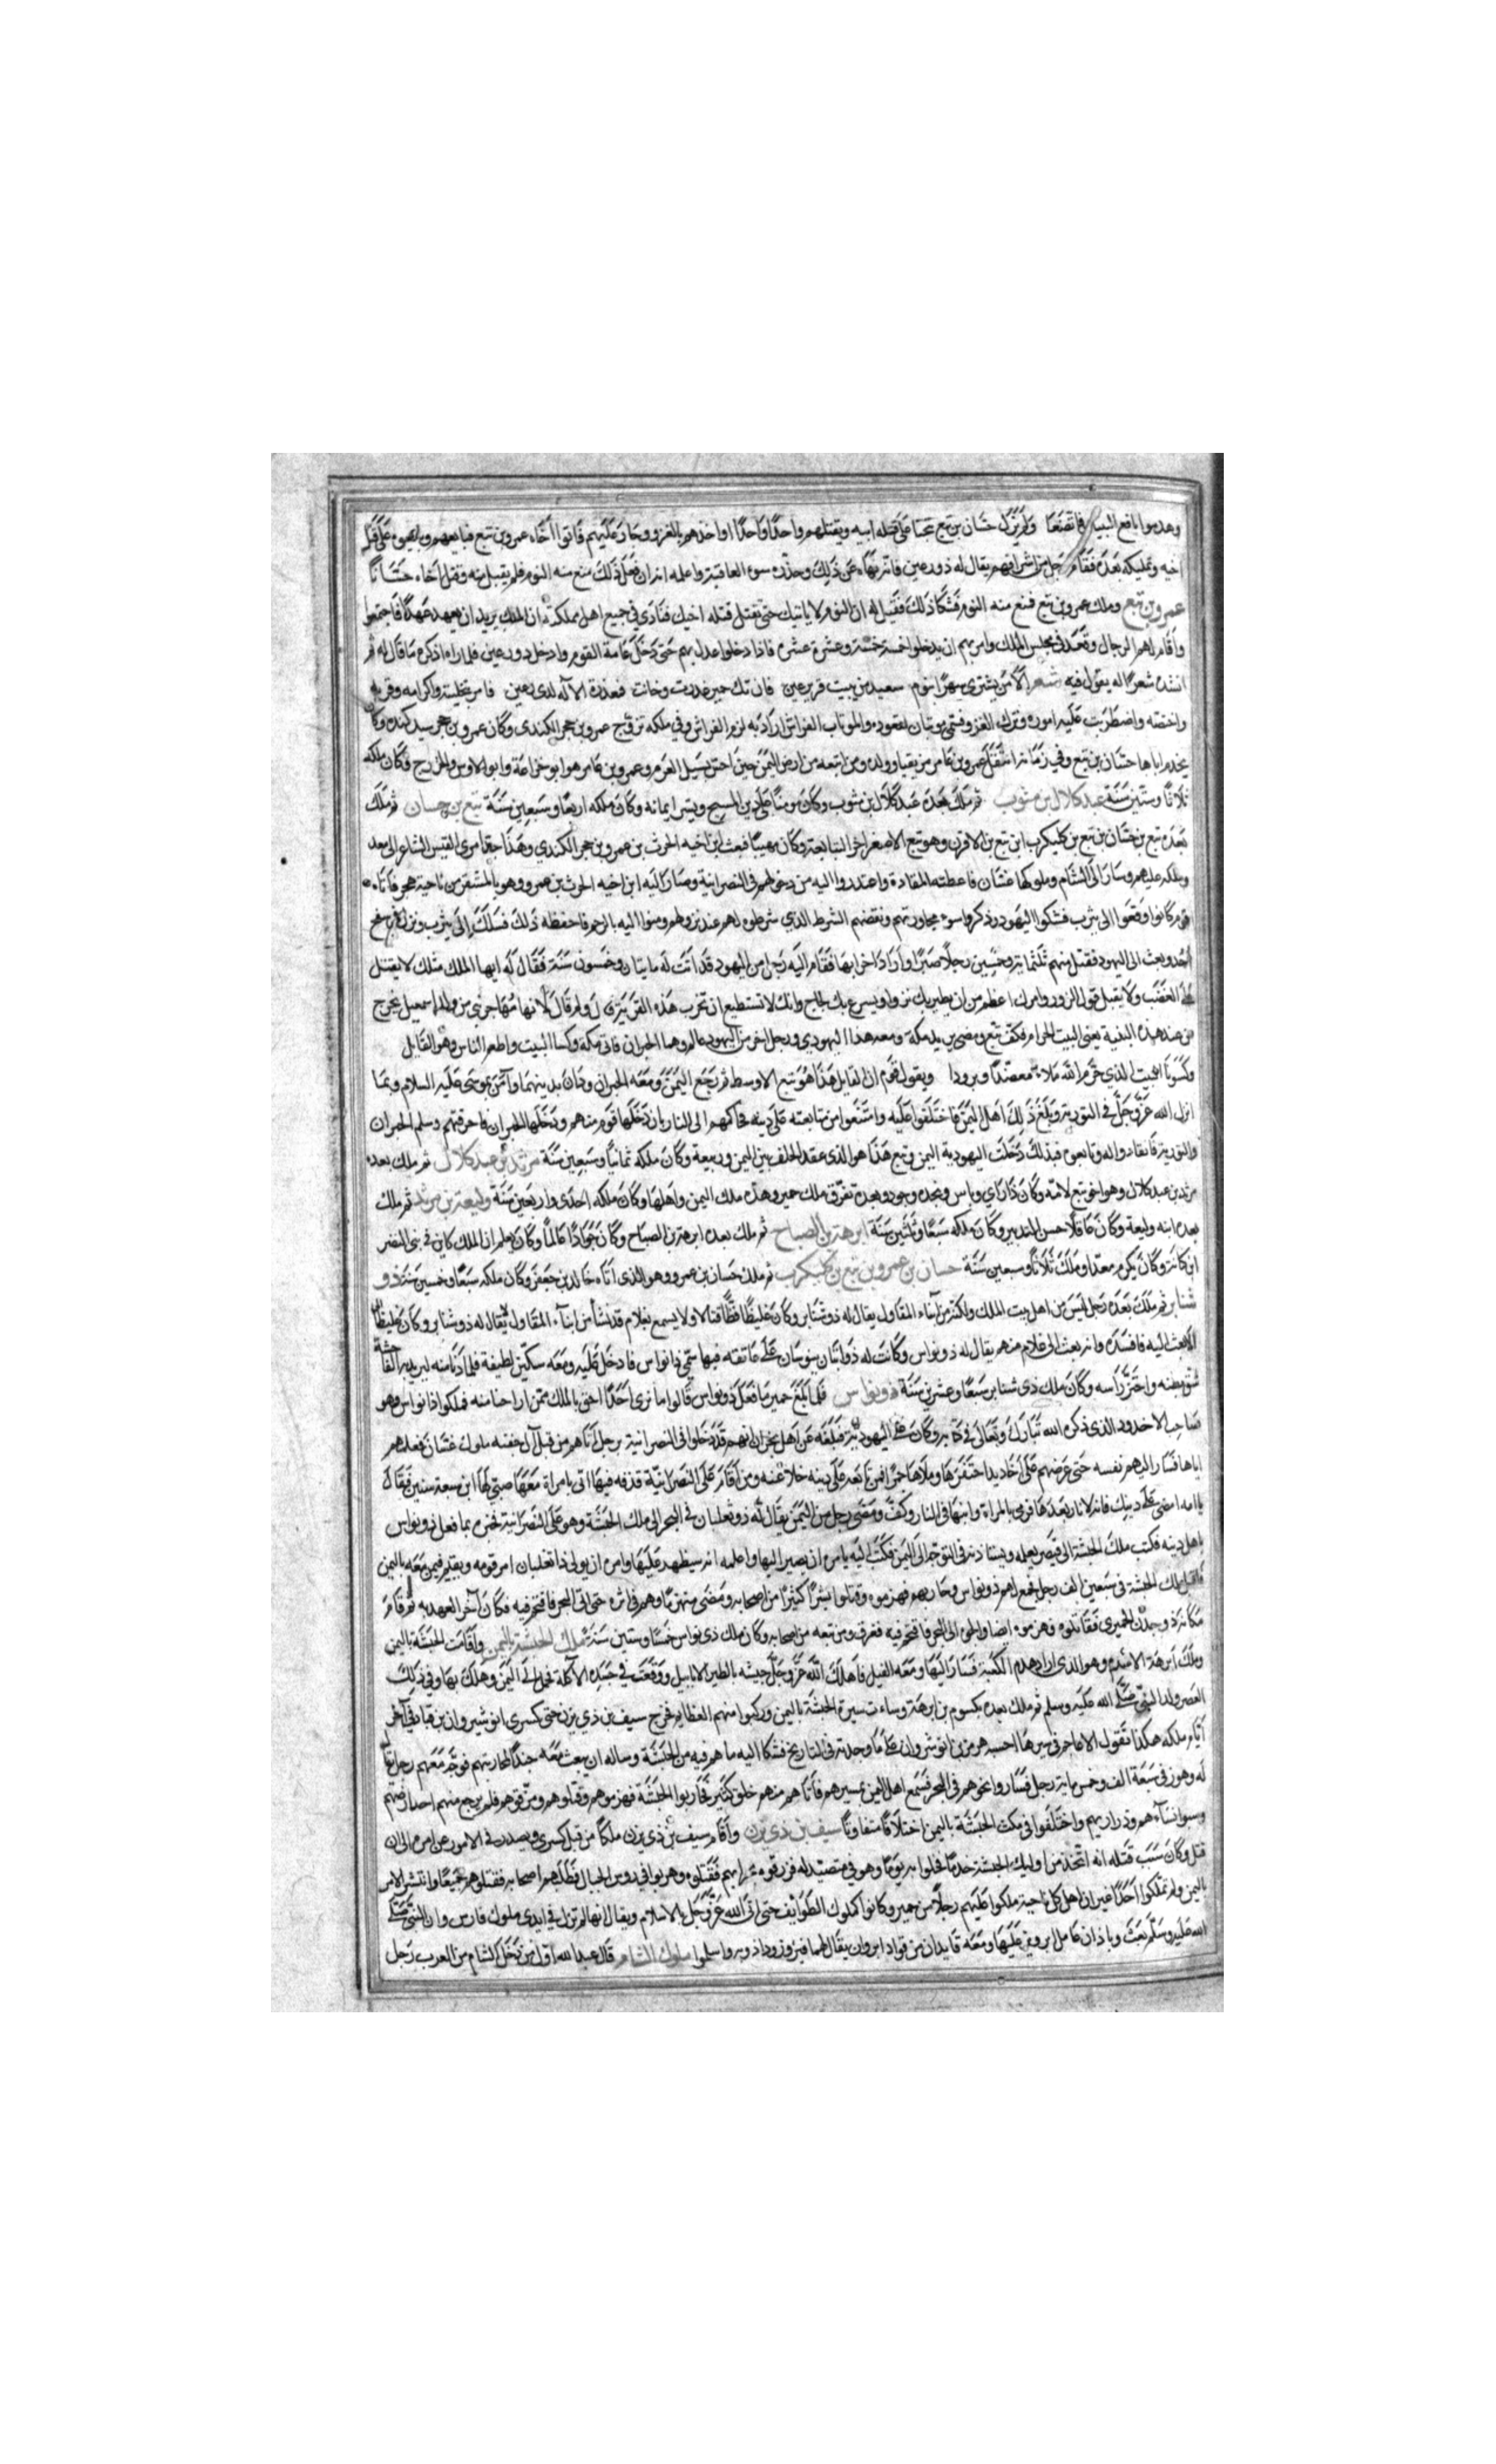 وهدموا يافع البنيان فاتضعا ولم يزل حسان بن تبع محنقا على قتلة ابيه ويقتلهم واحدا واحدا واخذهم بالغزو وجار عليهم فاتوا اخاه عمرو بن تبع فبايعهم وبايعوه على قتل
اخيه وتمليكه بعده فقام رجل من اشرافهم يقال له ذو رعين فانه نهاه عن ذلك وحذره سوء العاقبة واعلمه انه ان فعل ذلك منع منه النوم فلم يقبل منه وقتل اخاه حسانا
عمرو بن تبع وملك عمرو بن تبع فمنع منه النوم فشكا ذلك فقيل له ان النوم لا ياتيك حتى تقتل قتلة اخيك فنادى في جميع اهل مملكته ان الملك يريد ان يعهد عهدا فاجتمعوا
واقام لهم الرجال وقعد في مجلس الملك وامرهم ان يدخلوا خمسة خمسة وعشرة عشرة فاذا دخلوا عدل بهم حتى دخل عامة القوم وادخل ذو رعين فلما راه اذكره ما قال له ثم
انشده شعرا له يقول فيه شعر الا من يشتري سهرا بنوم سعيد من يبيت قرير عين فان تك حمير غدرت وخانت فمعذرة الاله لذي رعين فامر بتخليته واكرامه وقربه
واختصه واضطربت عليه اموره وترك الغزو فسمي موثبان لقعوده والموثاب الفراش اراد به لزم الفراش وفي ملكه تزوج عمرو بن حجر الكندي وكان عمرو بن حجر سيد كنده وكان
يخدم اباها حسان بن تبع وفي زمانه انتقل عمرو بن عامر مزيقيا وولده ومن اتبعه من ارض اليمن حين احتر بسيل العرم وعمرو بن عامر هو ابو خزاعة وابو الاوس والخزرج وكان ملكه
ثلاثا وستين سنة عبد كلال بن مثوب ثم ملك بعده عبد كلال بن مثوب وكان مومنا على دين المسيح ويسر ايمانه وكان ملكه اربعا وسبعين سنة تبع بن حسان ثم ملك
بعده تبع بن حسان بن تبع بن كليكرب ابن تبع بن الاقرن وهو تبع الاصغر اخر التبابعة وكان مهيبا فبعث ابن اخيه الحرث بن عمرو بن حجر الكندي وهذا جد امرئ القيس الشاعر الى معد
وملكه عليهم وسار الى الشام وملوكها غسان فاعطته المقادة واعتذروا اليه من دخولهم في النصرانية وصار اليه ابن اخيه الحرث بن عمرو وهو بالمشقر من ناحية هجر فاتاه
قوم كانوا وقعوا الى يثرب فشكوا اليهود وذكروا سوء مجاورتهم ونقضهم الشرط الذي شرطوه لهم عند نزولهم ومتوا اليه بالرحم فاحفظه ذلك فسلك الى يثرب ونزل في سفح
احد وبعث الى اليهود فقتل منهم ثلثماية وخمسين رجلا صبرا واراد اخرابها فقام اليه رجل من اليهود قد اتت له مايتان وخمسون سنة فقال له ايها الملك مثلك لا يقتل
على الغضب ولا يقبل قول الزور وامرك اعظم من ان يطير بك نزوا ويسرع بك لجاج وانك لا تستطيع ان تخرب هذه القرية قال ولم قال لانها مهاجر نبي من ولد اسمعيل يخرج
من عند هذه البنية يعني البيت الحرام فكف تبع ومضى يريد مكة ومعه هذا اليهودي ورجل اخر من اليهود عالم وهما الحبران فاتى مكة وكسا البيت واطعم الناس وهو القايل
وكسونا البيت الذي حرم الله ملاء معضدا وبرودا ويقول قوم ان القايل هذا هو تبع الاوسط ثم رجع اليمن ومعه الحبران ودان بدينهما وآمن بموسى عليه السلام وبما
انزل الله عز وجل في التورية وبلغ ذلك اهل اليمن فاختلفوا عليه وامتنعوا من متابعته على دينه فحاكمهم الى النار بان دخلها قوم منهم ودخلها الحبران فاحرقتهم وسلم الحبران
والتورية فانقادوا له وتابعوه فبذلك دخلت اليهودية اليمن وتبع هذا هو الذي عقد الحلف بين اليمن وربيعة وكان ملكه ثمانيا وسبعين سنة مرثد بن عبد كلال ثم ملك بعده
مرثد بن عبد كلال وهو اخو تبع لامه وكان ذا راي وباس ونجده وجود وبعده تفرق ملك حمير وهذه ملك اليمن واهلها وكان ملكه احدى واربعين سنة وليعة بن مرثد ثم ملك
بعده ابنه وليعة وكان عاقلا حسن التدبير وكان ملكه سبعا وثلثين سنة ابرهة بن الصباح ثم ملك بعده ابرهة بن الصباح وكان جوادا عالما وكان يعلم ان الملك كاين في بني النضر
ابن كنانة وكان يكرم معدا وملك ثلاثا وسبعين سنة حسان بن عمرو بن تبع بن كليكرب ثم ملك حسان بن عمرو وهو الذي اتاه خالد بن جعفر وكان ملكه سبعا وخمسين سنة ذو
شناتر ثم ملك بعده رجل ليس من اهل بيت الملك ولكنه من ابناء المقاول يقال له ذو شناتر وكان غليظا فظا قتالا ولا يسمع بغلام قد نشا من ابناء المقاول
الا بعث اليه فافسده وانه بعث الى غلام منهم يقال له ذو نواس وكانت له ذؤابتان ينوسان على عاتقه فبها سمي ذا نواس فادخل عليه ومعه سكين لطيفة فلما دنا منه ليريد الفاحشة
شق بطنه واحتز راسه وكان ملك ذي شناتر سبعا وعشرين سنة ذو نواس فلما بلغ حمير ما فعل ذو نواس قالوا ما نرى احدا احق بالملك ممن اراحنا منه فملكوا ذا نواس وهو
صاحب الاخدود الذي ذكره الله تبارك وتعالى في كتابه وكان على اليهودية فبلغه عن اهل نجران انهم قد دخلوا في النصرانية برجل اتاهم من قبل آل جفنه ملوك غسان فعلمهم
اياها فسار اليهم بنفسه حتى عرضهم على اخاديد احتفرها وملاها جمرا فمن تابعه على دينه خلا عنه ومن اقام على النصرانية قذفه فيها اتى بامراة معها صبي لها ابن سبعة سنين فقال
يا امه امضي على دينك فانه لا نار بعدها فرمى بالمراة وابنها في النار وكف ومضى رجل من اليمن يقال له ذو ثعلبان في البحر الى ملك الحبشة وهو على النصرانية فخبره بما فعل ذو نواس
باهل دينه فكتب ملك الحبشة الى قيصر يعلمه ويستاذنه في التوجه الى اليمن فكتب اليه يامره ان يصير اليها واعلمه انه سيظهر عليها وامره ان يولي ذا ثعلبان امر قومه ويقيم فيمن معه باليمن
فاقبل ملك الحبشة في سبعين الف رجل فجمع لهم ذو نواس وحاربهم فهزموه وقتلوا بشرا كثيرا من اصحابه ومضى منهزما وهم في اثره حتى اتى البحر فاقتحم فيه فكان آخر العهد به ثم قام
مكانه ذو جدن الحميري فقاتلوه وهزموه ايضا والجوه الى البحر فاقتحم فيه فغرق ومن تبعه من اصحابه وكان ملك ذي نواس خمسا وستين سنة ملك الحبشة باليمن واقامت الحبشة باليمن
وملك ابرهة الاشرم وهو الذي اراد هدم الكعبة فسار اليها ومعه الفيل فاهلك الله عز وجل جيشه بالطير الابابيل ووقعت في جسده الآكلة فحمل الى اليمن وهلك بها وفي ذلك
العصر ولد النبي صلى الله عليه وسلم ثم ملك بعده يكسوم بن ابرهة وساءت سيرة الحبشة باليمن وركبوا منهم العظايم فخرج سيف بن ذي يزن حتى كسرى انو شيروان بن قباد في آخر
ايام ملكه هكذا تقول الاعاجم في سيرها احسبه هرمز بن انوشروان على ما وجدته في التاريخ فشكا اليه ما هم فيه من الحبشة وساله ان يبعث معه جندا لمحاربتهم فوجه معهم رجلا يقال
له وهرز في سبعة الف وخمس ماية رجل فساروا نحوهم في البحر فسمع اهل اليمن بمسيرهم فاتاهم منهم خلق كثير فحاربوا الحبشة فهزموهم وقتلوهم ومزقوهم فلم يرجع منهم احد الى ارضهم
وسبوا نساءهم وذراريهم واختلفوا في مكث الحبشة باليمن اختلافا متفاوتا سيف بن ذي يزن واقام سيف بن ذي يزن ملكا من قبل كسرى ويصدر في الامور عن امره الى ان
قتل وكان سبب قتله انه اتخذ من اوليك الحبشة خدما فخلوا به يوما وهو في متصيد له فزرقوه بحرابهم فقتلوه وهربوا في روس الجبال فطلبهم اصحابه فقتلوهم جميعا وانتشر الامر
باليمن ولم يملكوا احدا غير ان اهل كل ناحية ملكوا عليهم رجلا من حمير وكانوا كملوك الطوايف حتى اتى الله عز وجل بالاسلام ويقال انها لم تزل في ايدي ملوك فارس وان النبي صلى
الله عليه وسلم بعث وباذان عامل ابرويز عليها ومعه قايدان من قواد ابروان يقال لهما فيروز وداذويه واسلموا ملوك الشام قال عبد الله اول من دخل الشام من العرب رجل